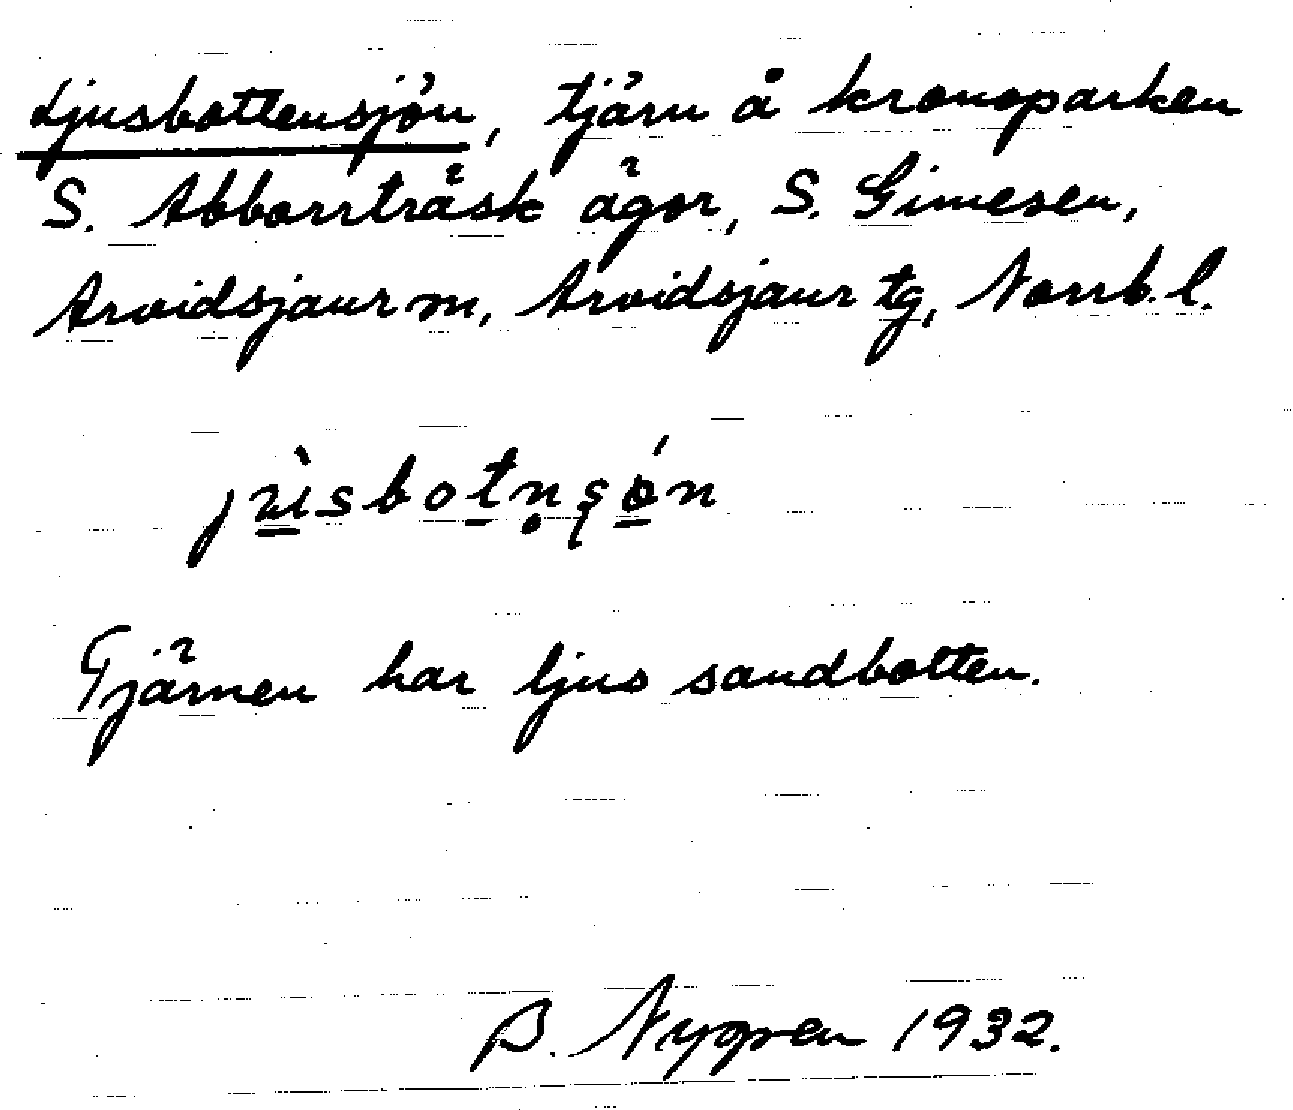 Ljusbottensjön, tjärn å kronoparken
S. Abborrträsk ägor, S. Gimesen,
Arvidsjaur m, Arvidsjaur tg, Norrb. l.
Tjärnen har ljus sandbotten.
B. Nygren 1932.